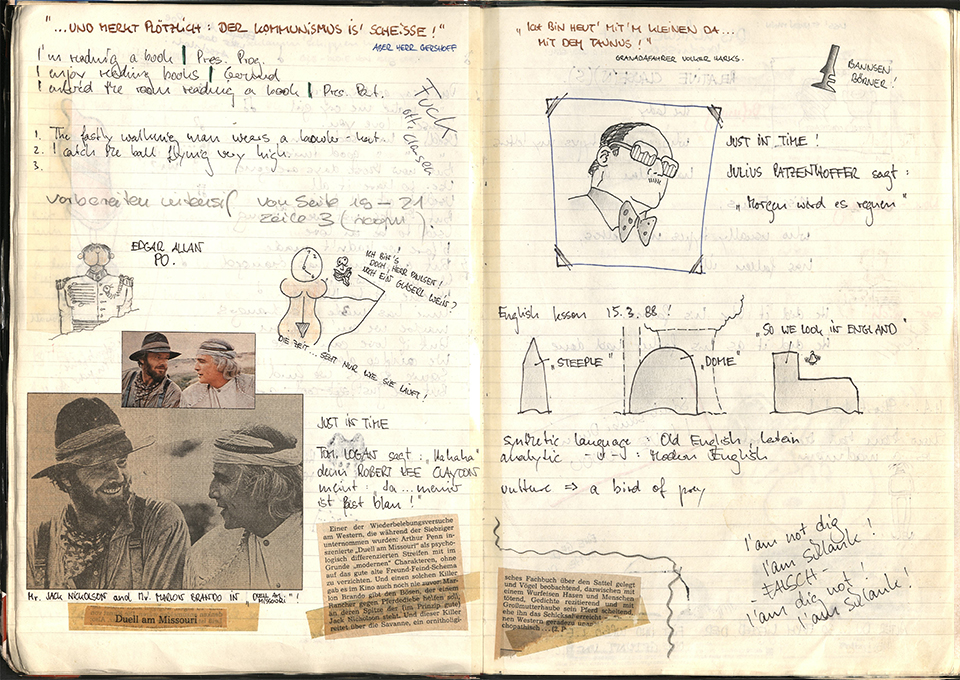 "...UND MERKT PLÖTZLICH: DER KOMMUNISMUS IS' SCHEISSE!"
ABER HERR GERSHOFF
I'm reading a book | Pres. Prog.
I enjoy reading books | Gerund
I entered the room reading a book | Pres. Part.
Fuck
off, Clausen
1. The fastly walking man wears a bowler-hat!
2. I catch the ball flying very high.
3.
vorbereiten von Seite 19-21
Zeile 3 (room)
EDGAR ALLAN
PO.
ICH BIN'S!
DOCH, HERR PAULSEN!
NOCH EIN GLASERL WEIN?
DIE ZEIT... SEHT NUR WIE SIE LÄUFT!
JUST IN TIME
TOM LOGAN sagt: "Hahaha"
denn ROBERT LEE CLAYTON
meint: "Da... meiner
ist fast blau!"
Mr. JACK NICHOLSON and Mr. MARLON BRANDO IN "DUELL AM MISSOURI"!
Duell am Missouri
Einer der Wiederbelebungsversuche
am Western, die während der Siebziger
unternommen wurden: Arthur Penn in-
szenierte „Duell am Missouri" als psycho-
logisch differenzierten Streifen mit im
Grunde „modernen" Charakteren, ohne
auf das gute alte Freund-Feind-Schema
zu verzichten. Und einen solchen Killer
gab es im Kino auch noch nie zuvor: Mar-
lon Brando gibt den Bösen, der einem
Rancher gegen Pferdediebe helfen soll,
deren Spitze der (im Prinzip gute)
Jack Nicholson steht. Und dieser Killer
reitet über die Savanne, ein ornithologi-
"ICH BIN HEUT' MIT'M KLEINEN DA...
MIT DEM TAUNUS!"
GRANADAFAHRER VOLKER HARKS.
BANNSEN
BÖRNER!
JUST IN TIME!
JULIUS PATZENHOFFER sagt:
"Morgen wird es regnen"
English lesson 15.3.88!
"STEEPLE"
"DOME"
"SO WE LOOK IN ENGLAND"
synthetic language: Old English, Latein
analytic -"-: Modern English
vulture ⇒ a bird of prey
sches Fachbuch über den Sattel gelegt
und Vögel beobachtend, dazwischen mit
einem Wurfeisen Hasen und Menschen
tötend, Gedichte rezitierend und mit
Großmutterhaube sein Pferd scheltend,
ehe ihn das Schicksal erreicht
nen Western geradezu
chopathisch
I'am not dig
I'am Sklanke!
-FALSCH-
I'am dig not!
I'am Sklanke!